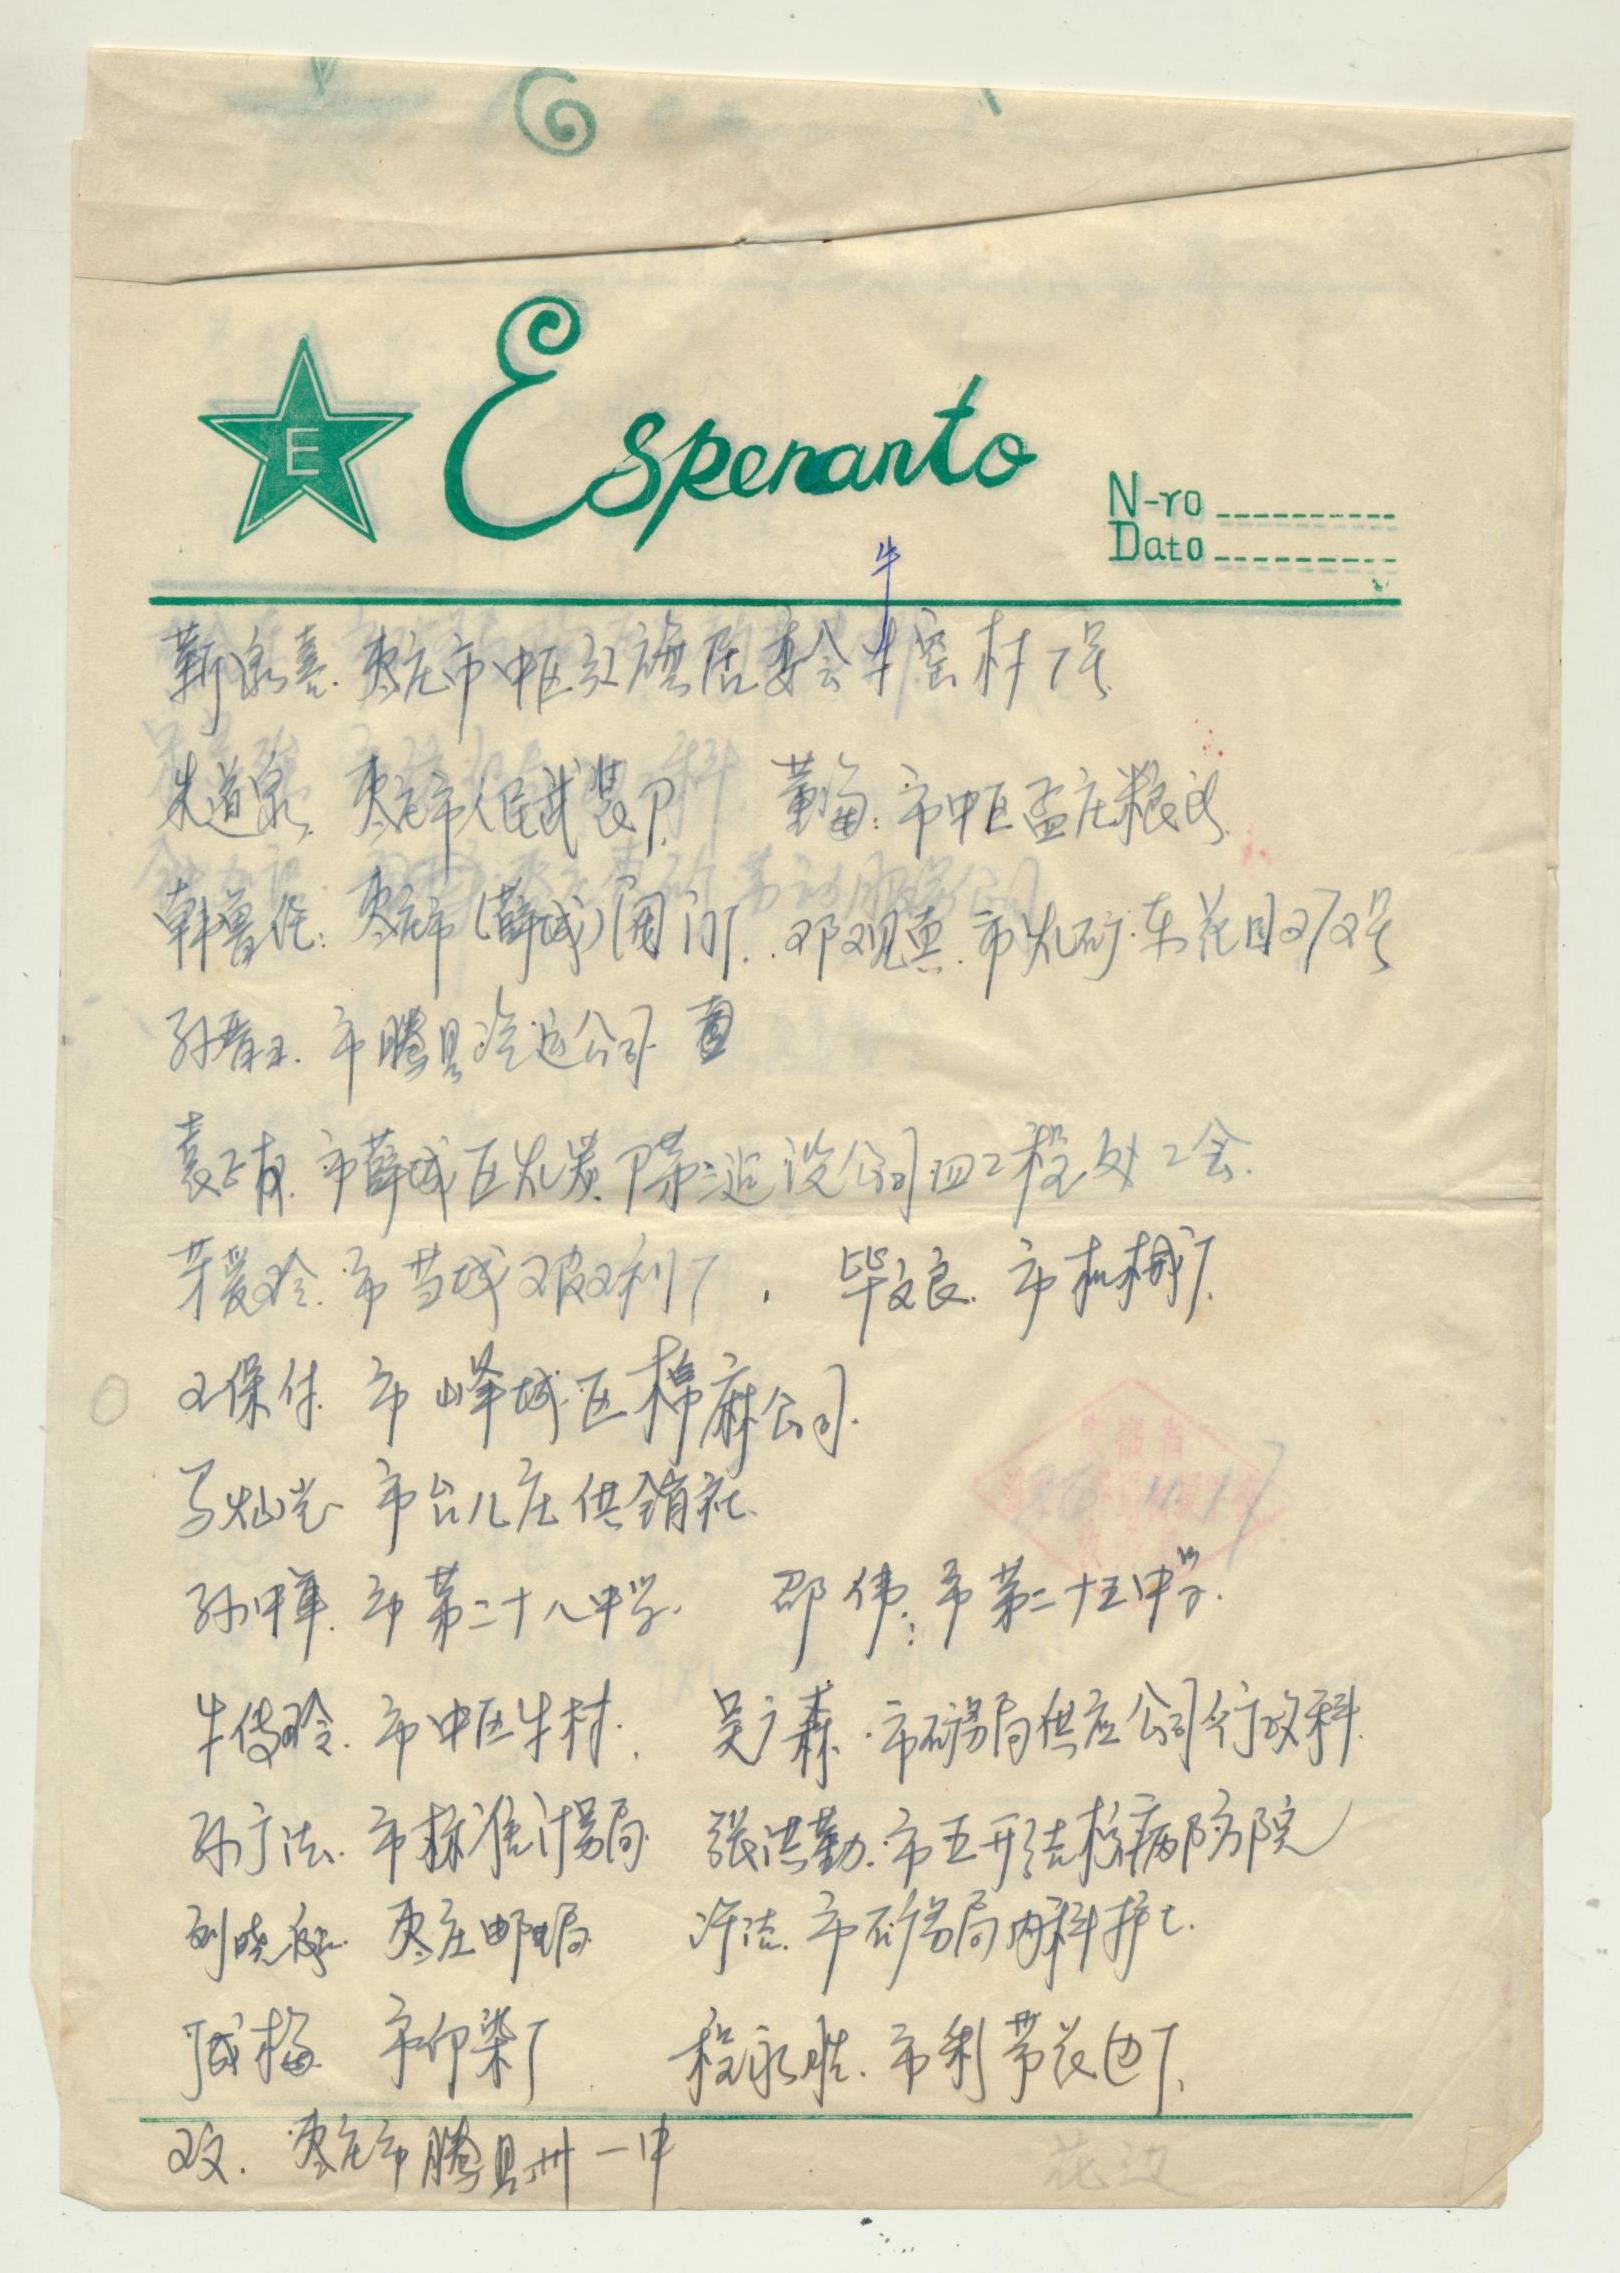 E Esperanto
N-ro
Dato
牛
靳泳喜. 枣庄市中区红旗居委会牛窑村7号
朱道泉. 枣庄市人民武装部 董海: 市中区孟庄粮所.
韩鲁征: 枣庄市(薛城)闸门厂. 邓观真. 市枣矿东花园272号
孙晋玉. 市滕县汽运公司
袁正有. 市薛城区煤炭部第三建设公司四工程处工会.
芳爱玲. 市邹城玻璃厂, 毕文良. 市机械厂.
王保付. 市峄城区棉麻公司.
马灿岩 市台儿庄供销社.
孙中华. 市第二十八中学. 邵伟: 市第二十五中学.
牛传玲. 市中区牛村. 吴广森. 市矿务局供应公司行政科.
孙广法. 市标准计量局 张洪勤. 市立新结核病防院
刘晓 枣庄邮电局 许洁. 市矿务局内科护士.
臧梅 市印染厂 程永胜. 市制带花边厂.
邓文. 枣庄市滕县卅一中
花边